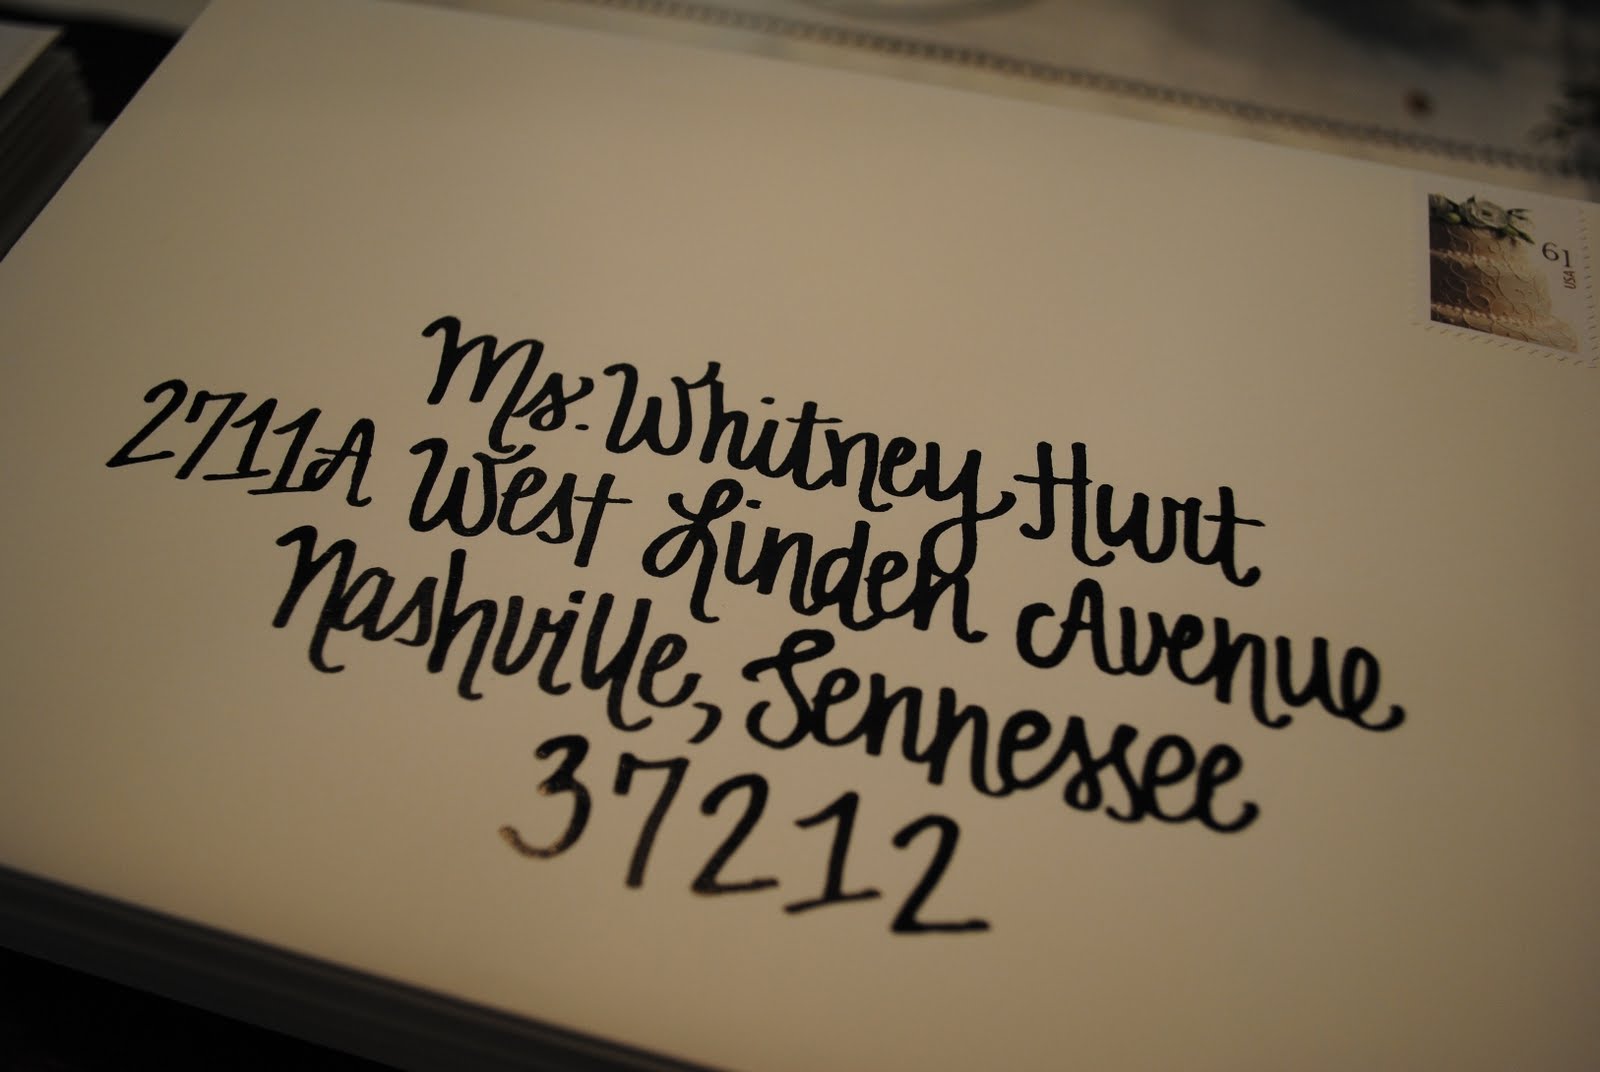 Ms. Whitney Hurt
2711A West Linden Avenue
Nashville, Tennessee
37212
61
USA